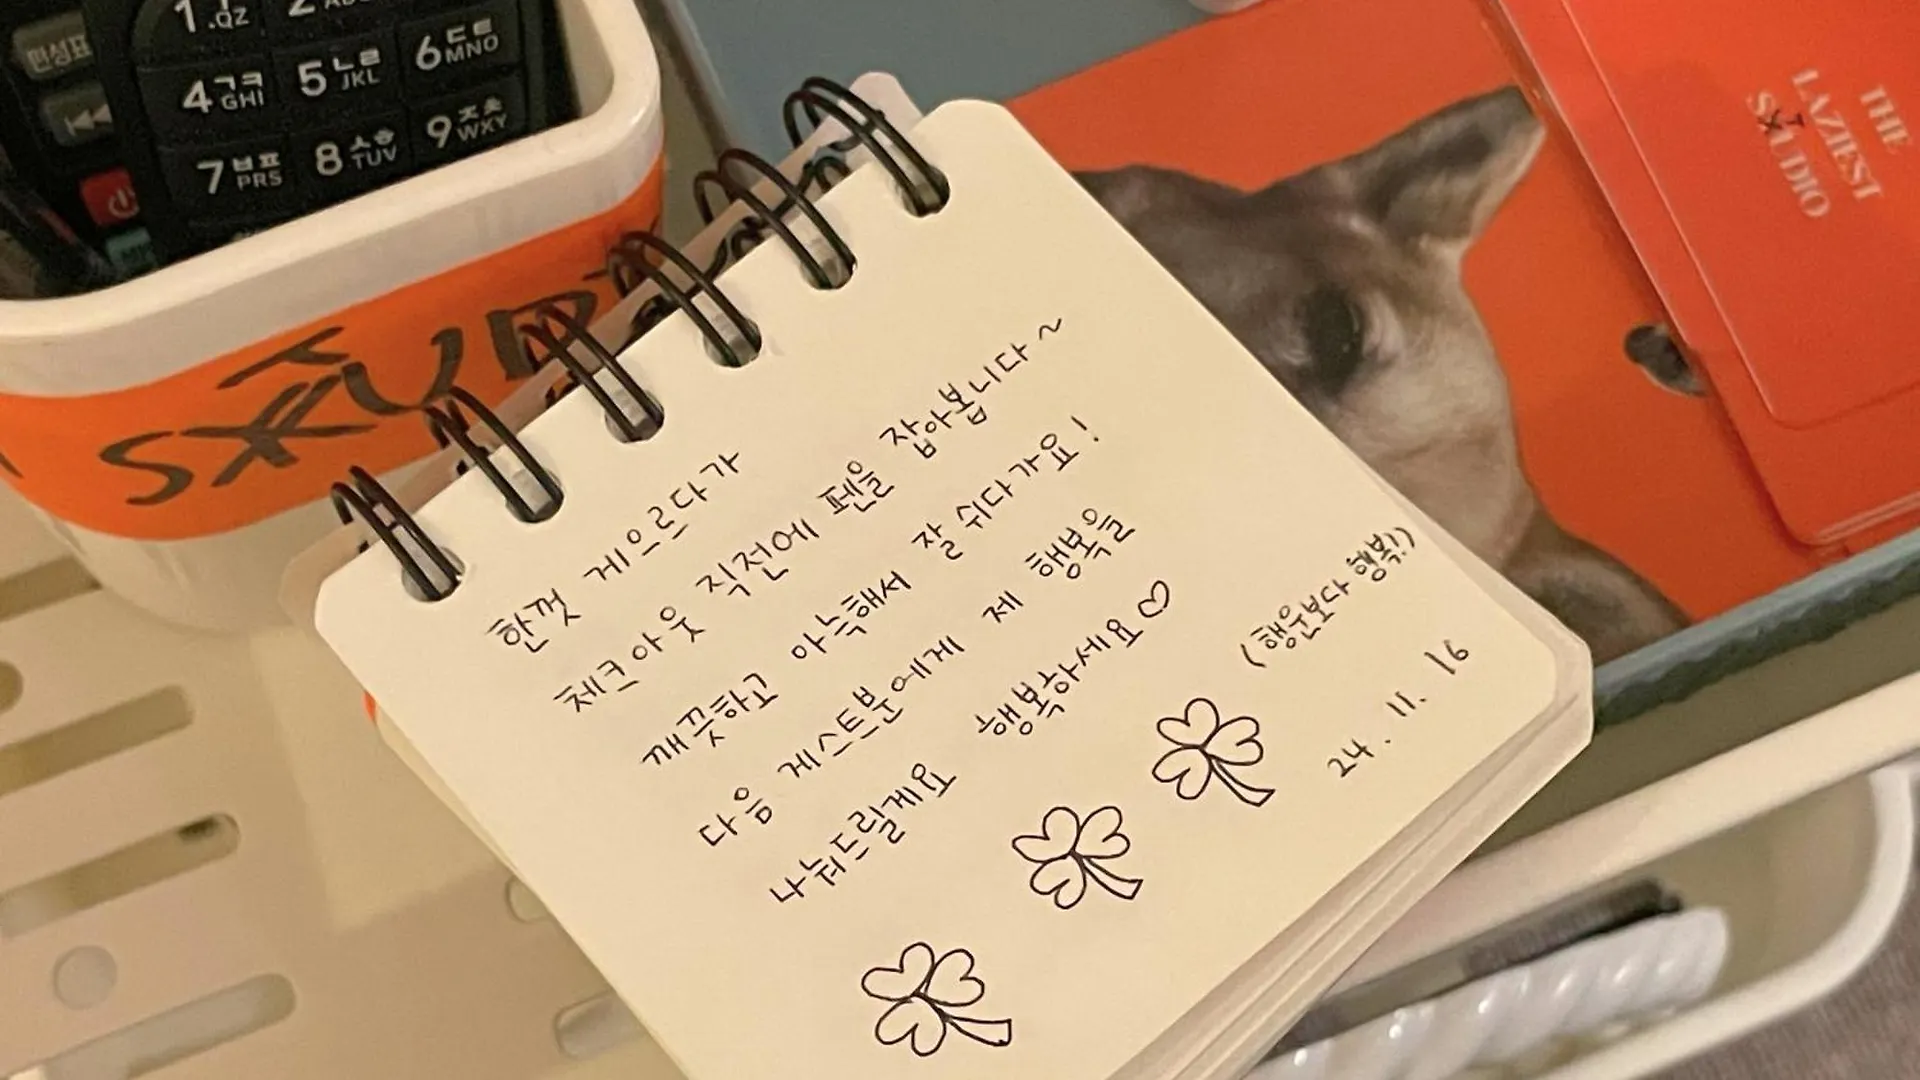 1.QZ
4ㄱㅋGHI 5ㄴㄹJKL 6ㄷㅌMNO
7ㅂㅍPRS 8ㅅㅎTUV 9ㅈㅊWXY
편성표
THE
LAZIEST
SXTUDIO
SXTUD
한껏 게으르다가
체크아웃 직전에 펜을 잡아봅니다~
깨끗하고 아늑해서 잘 쉬다가요!
다음 게스트분에게 제 행복을
나눠드릴게요 행복하세요♡
(행운보다 행복!)
24.11.16